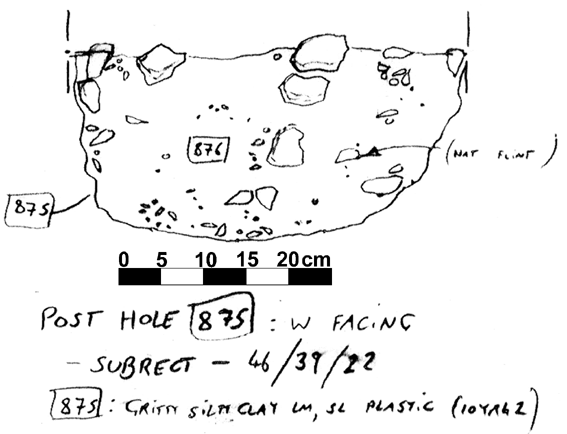 876
(NAT FLINT)
875
0 5 10 15 20 cm
POST HOLE 875 : W FACING
- SUBRECT - 46/39/22
875 : GRITTY SILTY CLAY LM, SL PLASTIC (10YR42)